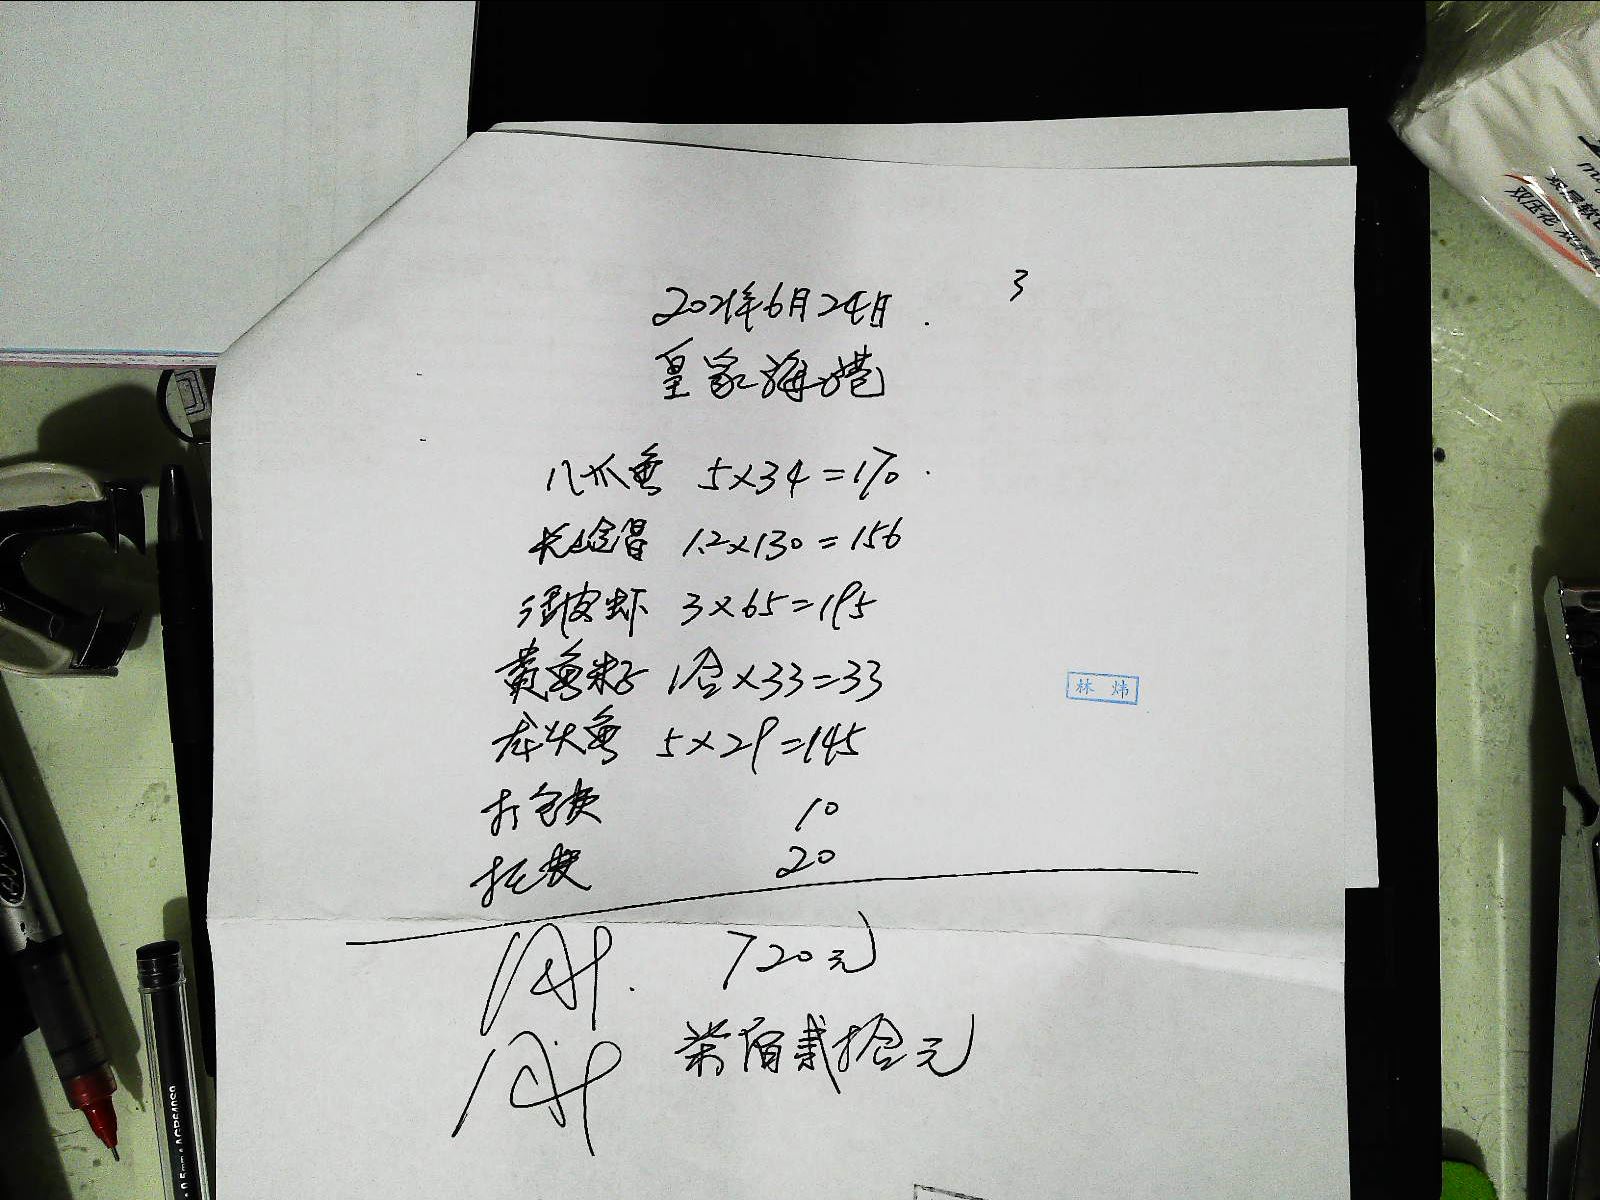 3
2021年6月24日.
皇家海港
八爪鱼 5×34=170.
1.2×130=156
活皮虾 3×65=195
黄鱼籽 1合×33=33
龙头鱼 5×29=145
打包费 10
托费 20
合计. 720元
合计 柒佰贰拾元
林炜
双压花